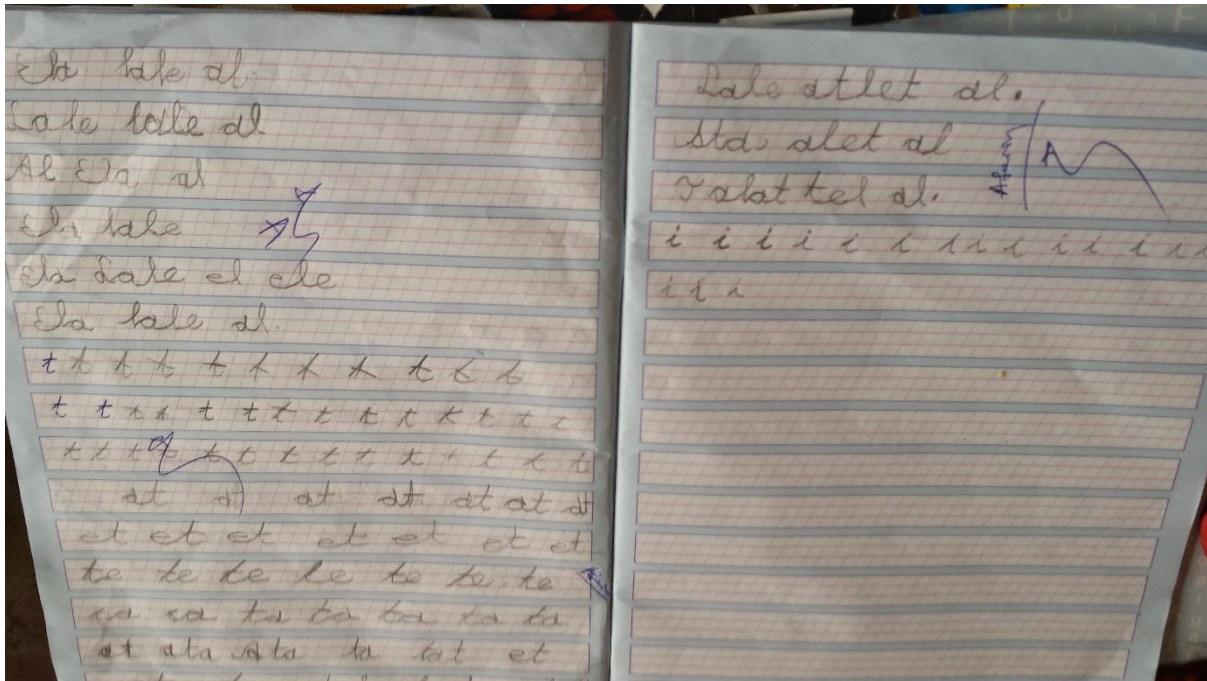 Ela lale al.
Lale lale al
Al Ela al
Ela lale
Ela Lale el ele
Ela lale al.
t t t t t t t t t t t
t t t t t t t t t t t t t
t t t t t t t t t t t t t
at at at at at at at
et et et et et et et
te te te te te te te
ta ta ta ta ta ta ta
at ata Ata ta tat et
Lale atlet al.
Ata alet al
Talat tel al.
Aferin A
i i i i i i i i i i i i i i
i i i